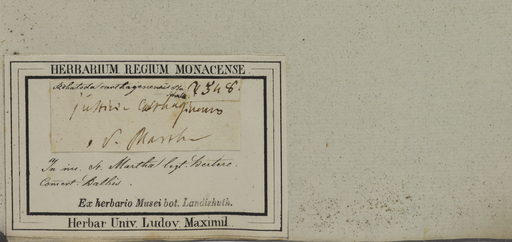 HERBARIUM REGIUM MONACENSE
carthagenensis
2348.
justicia carthaginensis
S. Martha
In m. S. Martha legt. Bertero.
Ex herbario Musei bot. Landishuth.
Herbar Univ. Ludov. Maximil.